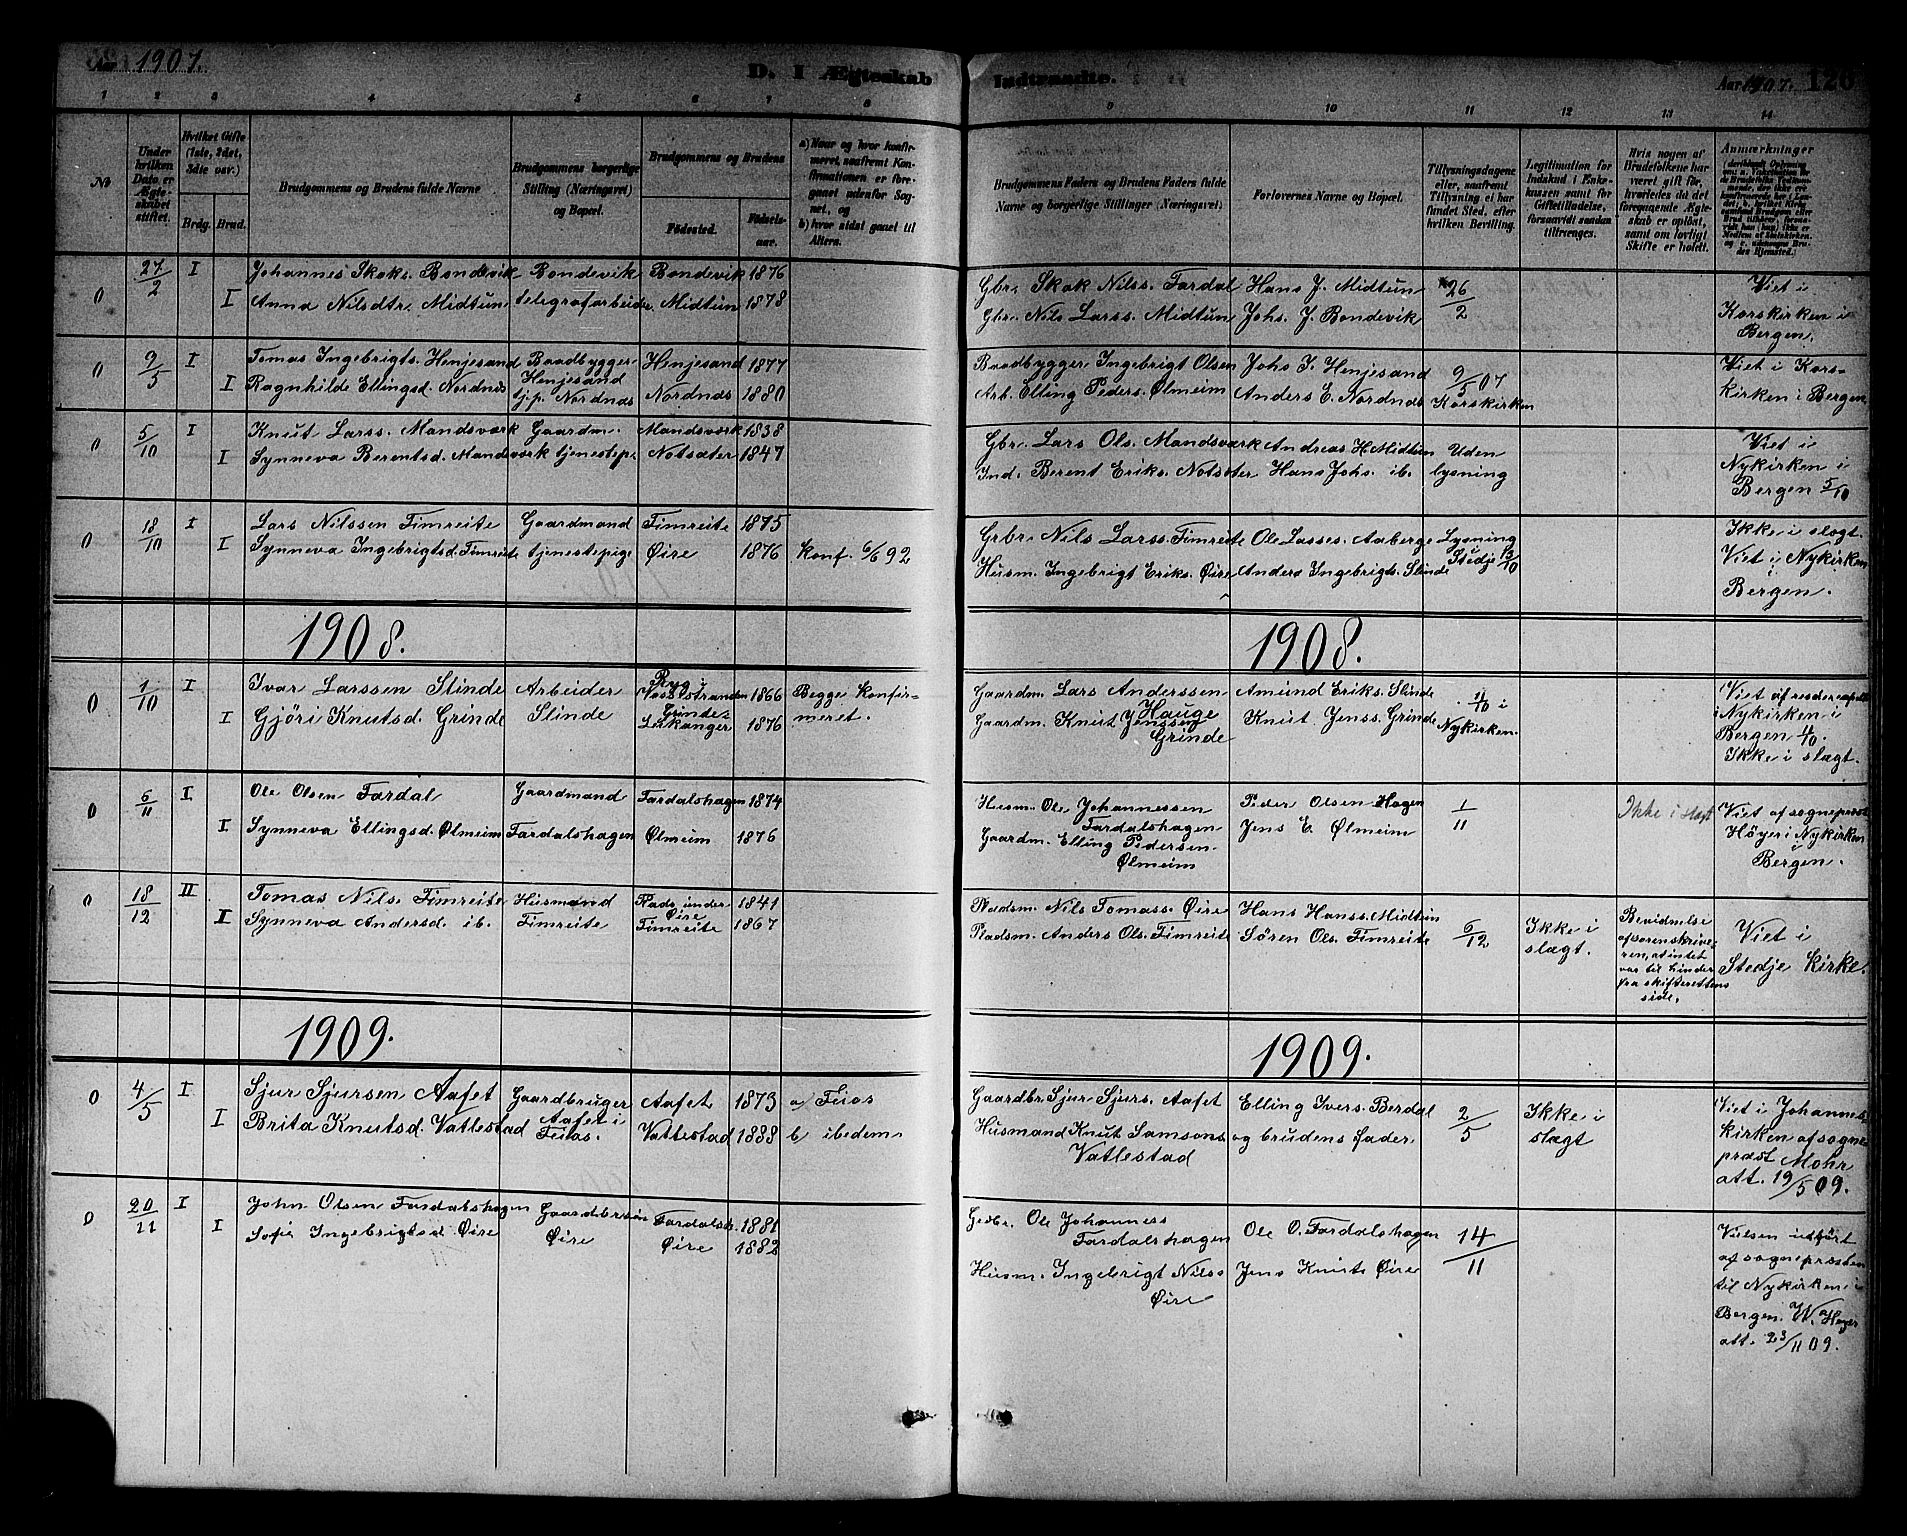 Aar 1907.
D. I Ægteskab
Indtraadte.
Aar 1907.
126
1 2 3 4 5 6 7 8
9 10 11 12 13 14
No
Under hvilken Dato er Ægteskabet stiftet.
Hvilket Gifte (1ste, 2det, 3die osv.)
Brdg. Brud.
Brudgommens og Brudens fulde Navne
Brudgommens borgerlige Stilling (Næringsvei) og Bopæl.
Brudgommens og Brudens
Fødested.
Fødselsaar.
a) Naar og hvor konfirmeret, saafremt Konfirmationen er foregaaet udenfor Sognet, og
b) hvor sidst gaaet til Alters.
Brudgommens Faders og Brudens Faders fulde Navne og borgerlige Stillinger (Næringsvei)
Forlovernes Navne og Bopæl.
Tillysningsdagene eller, saafremt Tillysning ei har fundet Sted, efter hvilken Bevilling.
Legitimation for Indskud i Enkekassen samt for Giftetilladelse, forsaavidt saadan tiltrænges.
Hvis nogen af Brudefolkene har været gift før, hvorledes da det foregaaende Ægteskab er opløst, samt om lovligt Skifte er holdt.
Anmærkninger
0 27/2 I Johannes Skaks. Bondevik Bondevik Bondevik 1876
I Anna Nilsdtr. Midtun telegrafarbeider Midtun 1878
Gbr. Skak Nilss. Fardal Hans J. Midtun 26/2 Viet i
Gbr. Nils Larss. Midtun Johs. J. Bondevik Korskirken i
Bergen.
0 9/5 I Tomas Ingebrigts. Henjesand Baadbygger Henjesand 1877
I Ragnhilde Ellingsd. Nordnes Henjesand Nordnas 1880
tj.p. Nordnas
Baadbygger Ingebrigt Olsen Johs I. Henjesand 9/5 07 Viet i Kors-
Arb. Elling Peders. Ølmeim Anders E. Nordnas Korskirken kirken i Bergen
0 5/10 I Knut Larss. Mandsværk Gaardm. Mandsværk 1838
I Synneva Berentsd. Mandsværk tjenestep. Notsæter 1847
Gbr. Lars Ols. Mandsværk Andreas H. Midtun Uden Viet i
Ind. Berent Eriks. Notsæter Hans Johs. ib. lysning Nykirken i
Bergen 5/10
0 18/10 I Lars Nilssen Fimreite Gaardmand Fimreite 1875
I Synneva Ingebrigtsd. Fimreite tjenestepige Øire 1876 Konf. 6/6 92
Grbr. Nils Larss. Fimreite Ole Lasses. Aaberge Lysning Ikke i slægt.
Husm. Ingebrigt Eriks. Øire Anders Ingebrigts. Slinde Stedje 13/10 Viet i Nykirken
i
Bergen.
1908.
1908.
0 1/10 I Ivar Larssen Slinde Arbeider Ryg i Vossestranden 1866 Begge konfir-
I Gjöri Knutsd. Grinde Slinde Grinde Leikanger 1876 meret.
Gaardm. Lars Anderssen Hauge Amund Eriks. Slinde 4/10 i Viet af
Gaardm. Knut Jenssen Grinde Knut Jenss. Grinde Nykirken. i Nykirken i
Bergen 4/10.
Ikke i slægt.
0 6/11 I Ole Olsen Fardal Gaardmand Fardalshagen 1874
I Synneva Ellingsd. Ølmeim Fardalshagen Ølmeim 1876
Husm. Ole Johannessen Fardalshagen Peder Olsen Hagen 1/11 Ikke i slægt Viet af sogneprest
Gaardm. Elling Pedersen Ølmeim Jens E. Ølmeim Höyer i Nykirken
i
Bergen.
0 18/12 II Tomas Nils. Fimreite Husmand Plads under Øire 1841
I Synneva Andersd. ib. Fimreite Fimreite 1867
Pladsm. Nils Tomass. Øire Hans Hanss. Midtun 6/12 Ikke i slægt. Bevidnelse
Pladsm. Anders Ols. Fimreite Sören Ols. Fimreite af sorenskrive-
ren, at intet
var til hinder
fra skifterettens
side.
Viet i
Stedje kirke.
1909.
1909.
0 4/5 I Sjur Sjursen Aafet Gaardbruger Aafet 1873 a) Fios
I Brita Knutsd. Vatlestad Aafet i Feios. Vatlestad 1888 b ibedem
Gaardbr. Sjur Sjurs. Aafet Elling Ivers. Berdal 2/5 Ikke i slægt Viet i Johannes-
Husmand Knut Samsons. og brudens fader. kirken af sogne-
Vatlestad præst Mohr
att. 19/5 09.
0 20/11 I John Olsen Fardalshagen Gaardbersön Fardalsh. 1881
I Sofie Ingebrigtsd Øire Øire Øire 1882
Grdbr. Ole Johanness Fardalshagen Ole O. Fardalshagen 14/11 Vielsen udført
Husm. Ingebrigt Nilss Øire Jens Knuts Øire af sognepresten
til Nykirken i
Bergen. W. Høyer
att. 23/11 09.